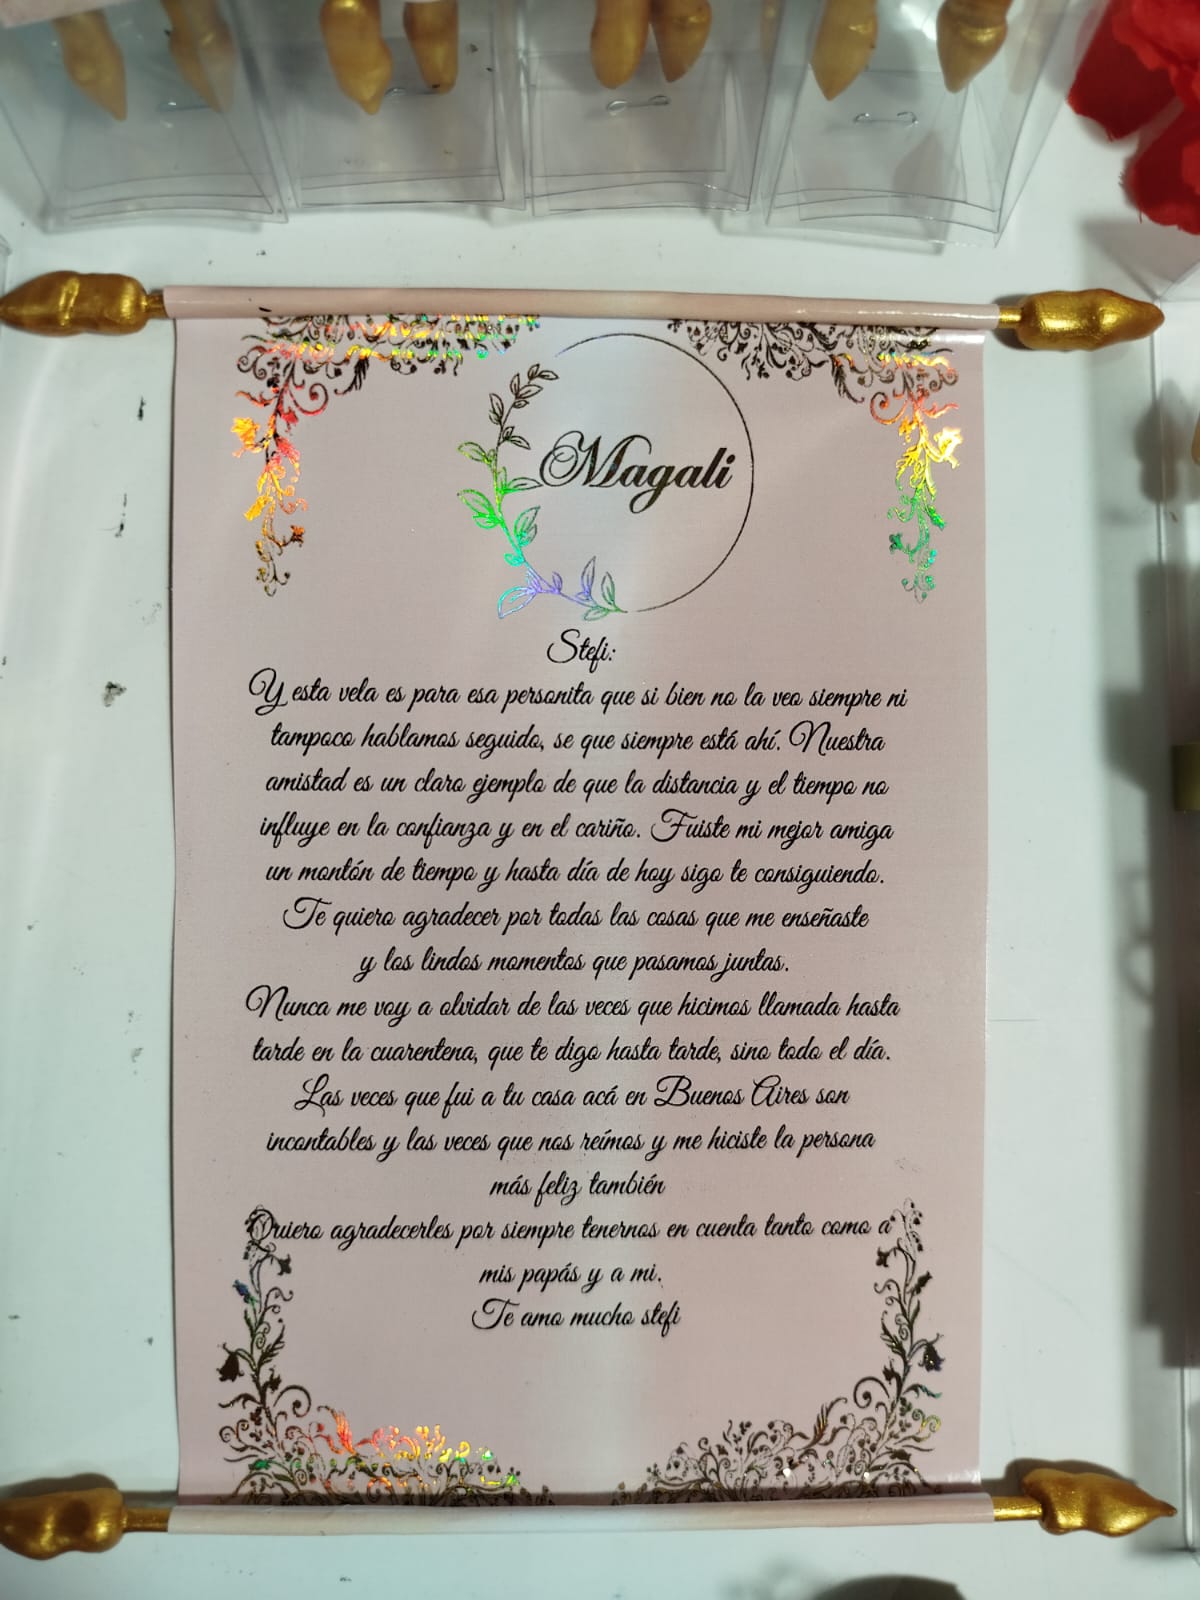 Magali
Stefi:
Y esta vela es para esa personita que si bien no la veo siempre ni
tampoco hablamos seguido, se que siempre está ahí. Nuestra
amistad es un claro ejemplo de que la distancia y el tiempo no
influye en la confianza y en el cariño. Fuiste mi mejor amiga
un montón de tiempo y hasta día de hoy sigo te consiguiendo.
Te quiero agradecer por todas las cosas que me enseñaste
y los lindos momentos que pasamos juntas.
Nunca me voy a olvidar de las veces que hicimos llamada hasta
tarde en la cuarentena, que te digo hasta tarde, sino todo el día.
Las veces que fui a tu casa acá en Buenos Aires son
incontables y las veces que nos reímos y me hiciste la persona
más feliz también
Quiero agradecerles por siempre tenernos en cuenta tanto como a
mis papás y a mi.
Te amo mucho stefi